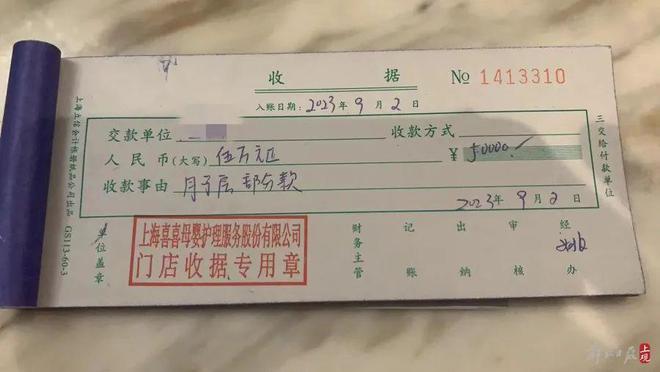 收 据
№ 1413310
入账日期：2023年9月2日
交款单位
收款方式
人民币(大写) 伍万元正
￥ 50000
收款事由 月子层部分款
2023年9月2日
单位盖章
上海喜喜母婴护理服务股份有限公司
门店收据专用章
财务主管
记账
出纳
审核
经办
三交给付款单位
上海立信会计帐册纸品公司出品 GS113-60-3
上观